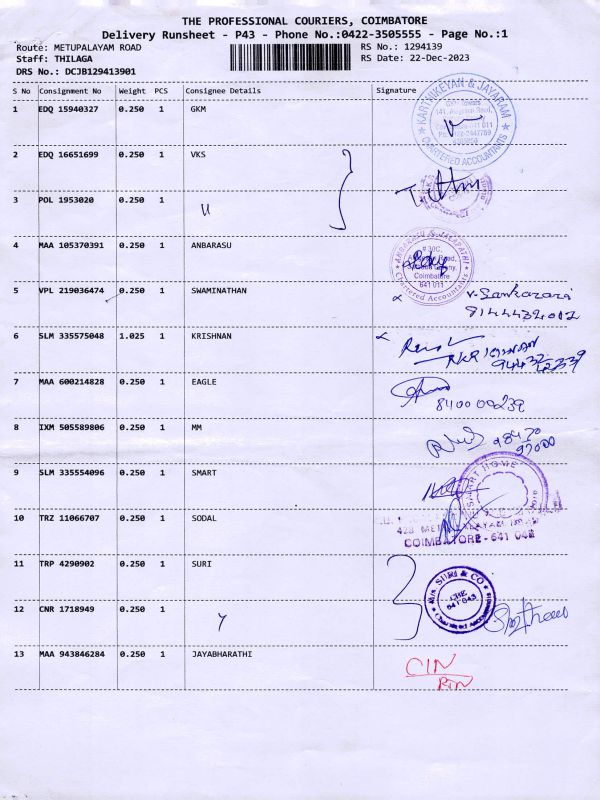 THE PROFESSIONAL COURIERS, COIMBATORE
Delivery Runsheet - P43 - Phone No.:0422-3505555 - Page No.:1
Route: METUPALAYAM ROAD RS No.: 1294139
Staff: THILAGA RS Date: 22-Dec-2023
DRS No.: DCJB129413901
S No Consignment No Weight PCS Consignee Details Signature
1 EDQ 15940327 0.250 1 GKM
KARTHIKEYAN & JAYARAM
CHARTERED ACCOUNTANTS
2 EDQ 16651699 0.250 1 VKS
3 POL 1953020 0.250 1
4 MAA 105370391 0.250 1 ANBARASU
ANBARASU & JALAPATHI
Coimbatore
641 011
Chartered Accountants
5 VPL 219036474 0.250 1 SWAMINATHAN
6 SLM 335575048 1.025 1 KRISHNAN
7 MAA 600214828 0.250 1 EAGLE
8 IXM 505589806 0.250 1 MM
9 SLM 335554096 0.250 1 SMART
SMART HOME
10 TRZ 11066707 0.250 1 SODAL
COIMBATORE - 641 043
11 TRP 4290902 0.250 1 SURI
M/s SURI & CO
CBE
641 043
Chartered Accountants
12 CNR 1718949 0.250 1
13 MAA 943846284 0.250 1 JAYABHARATHI
CIN
RTN